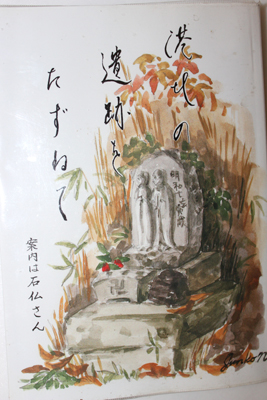 港北の
遺跡を
たずねて
案内は石仏さん